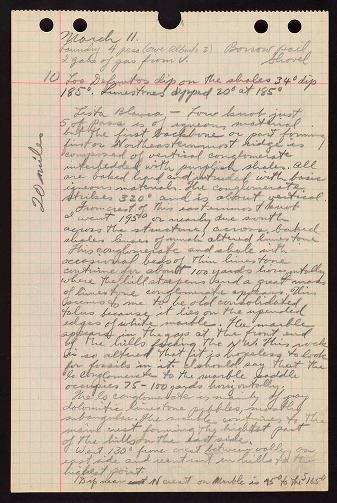 March 11.
Laundry 4 pesos (owe Alberto 2) Borrow pail
2 gals of gas from V. Shovel
10 Los Defuntos dip on the shales 34° dip
185°. Limestones dipped 20° at 185°
20 miles
Lista Blanca — Low knob just
5 of pass is of igneous material
but the first backbone or part forming
first or Northeasternmost ridge is
composed of vertical conglomerate
interbedded with purplish shales. All
are baked hard and intruded with basic
igneous material. The conglomerate
strikes 320° and is about vertical.
From crest of this easternmost knob
I went 195° or nearly due south
across the structure, across baked
shales, lenses of much altered limestone
This conglomerate and shale with
occasional beds of thin limestone
continue for about 100 yards horizontally
where the hill steepens and a great mass
of limestone conglomerate appears. This
seems to me to be old consolidated
talus because it lies on the upended
edges of white marble. The marble
appears in the gaps at the front end
of the hills facing the NW. This rock
is so altered that it is hopeless to look
for fossils in it. I should say that the
ls conglomerate to the marble saddle
occupies 75-100 yards horizontally.
The ls conglomerate is mainly of gray
dolomitic limestone pebbles, mostly
subangular. The marble continues to the
main crest forming the highest part
of the hills on the east side.
Went 130° from crest between valley on
east side and went out in hills to the
highest point.
Dip near crest on Marble is 45° to the 165°